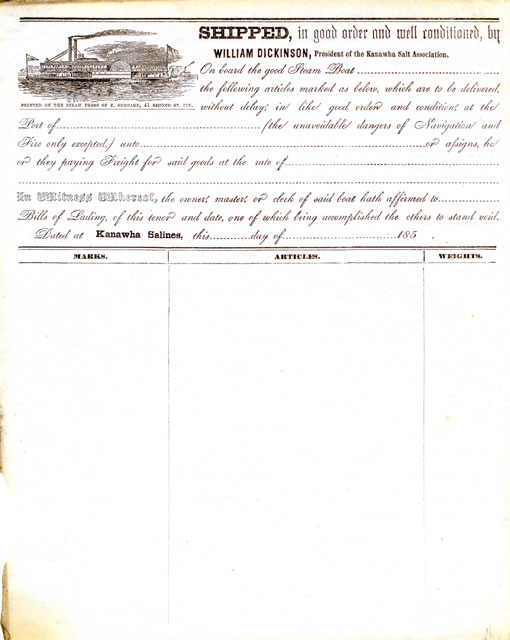 SHIPPED, in good order and well conditioned, by
WILLIAM DICKINSON, President of the Kanawha Salt Association.
On board the good Steam Boat
the following articles marked as below, which are to be delivered,
without delay, in like good order and condition, at the
PRINTED ON THE STEAM PRESS OF E. SHEPARD, 41 SECOND ST. CIN.
Port of (the unavoidable dangers of Navigation and
Fire only excepted,) unto or assigns, he
or they paying Freight for said goods at the rate of
In Witness Whereof, the owner, master, or clerk of said boat hath affirmed to
Bills of Lading, of this tenor and date, one of which being accomplished the others to stand void.
Dated at Kanawha Salines, this day of 185
MARKS. ARTICLES. WEIGHTS.